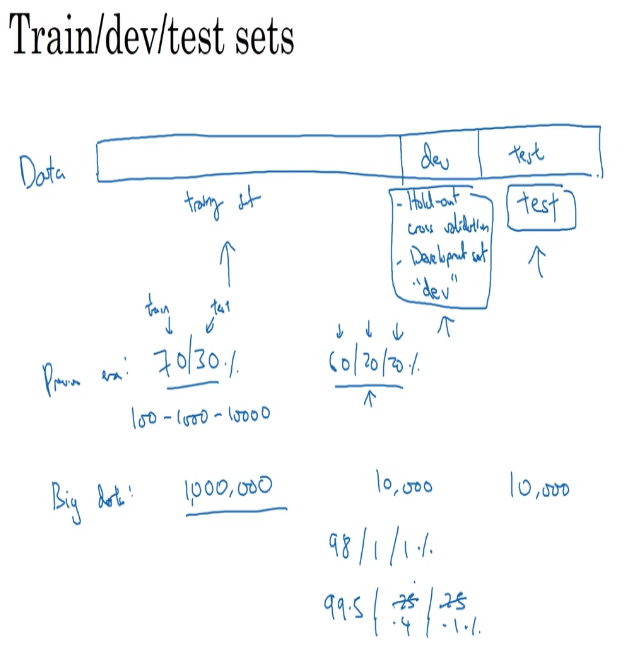 Train/dev/test sets
Data
dev test
training set
- Hold-out
cross validation
- Development set
"dev"
test
train test
Previous era: 70/30% 60/20/20%
100-1000-10000
Big data: 1,000,000 10,000 10,000
98/1/1%
99.5/.25/.25
.4/.1%